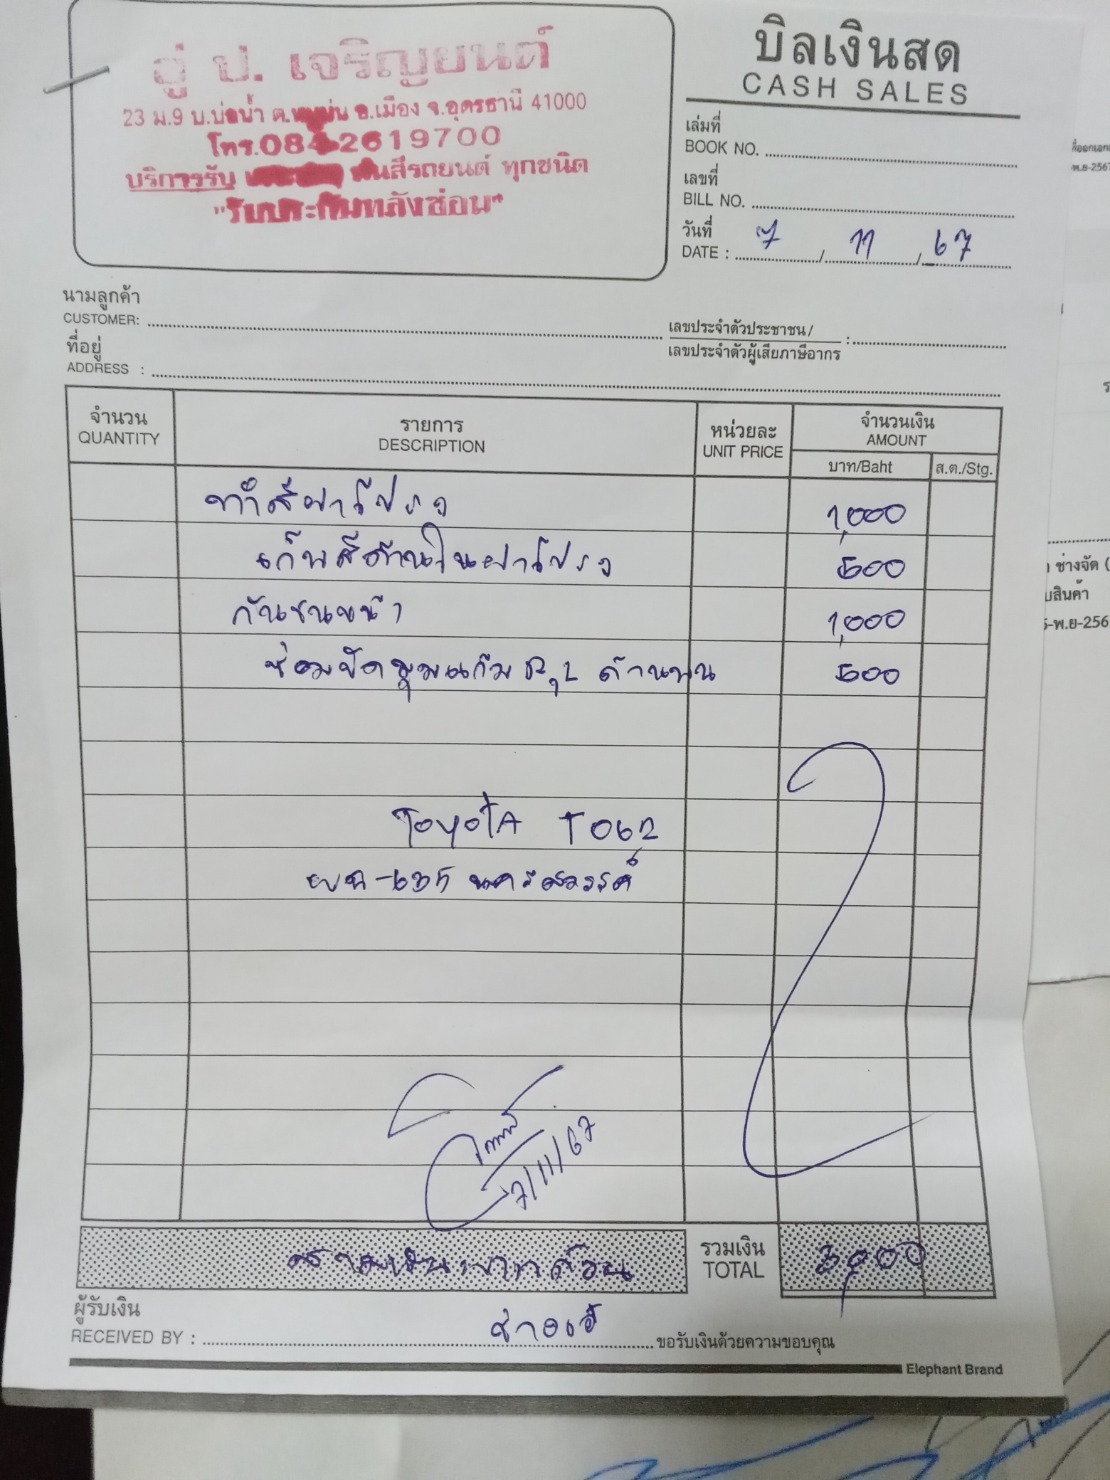 อู่ ป. เจริญยนต์
23 ม.9 บ.บ่อน้ำ อ.เมือง จ.อุดรธานี 41000
โทร.084-2619700
บริการรับ พ่นสีรถยนต์ ทุกชนิด
"รับประกันหลังซ่อม"
บิลเงินสด
CASH SALES
เล่มที่
BOOK NO.
เลขที่
BILL NO.
วันที่
DATE : 7 / 11 / 67
นามลูกค้า
CUSTOMER:
เลขประจำตัวประชาชน/ :
เลขประจำตัวผู้เสียภาษีอากร
ที่อยู่
ADDRESS :
จำนวน
QUANTITY
รายการ
DESCRIPTION
หน่วยละ
UNIT PRICE
จำนวนเงิน
AMOUNT
บาท/Baht
ส.ต./Stg.
ทำสีฝาโปรง 1,000
เก็บสีด้านในฝาโปรง 500
กันชนหน้า 1,000
ซ่อมขัดมุมแก้ม ด้านบน 500
TOYOTA T062
นครสวรรค์
7/11/67
สามพันบาทถ้วน
รวมเงิน
TOTAL
3,000
ผู้รับเงิน
RECEIVED BY : ขอรับเงินด้วยความขอบคุณ
Elephant Brand
ช่างจัด (
พ.ย-256